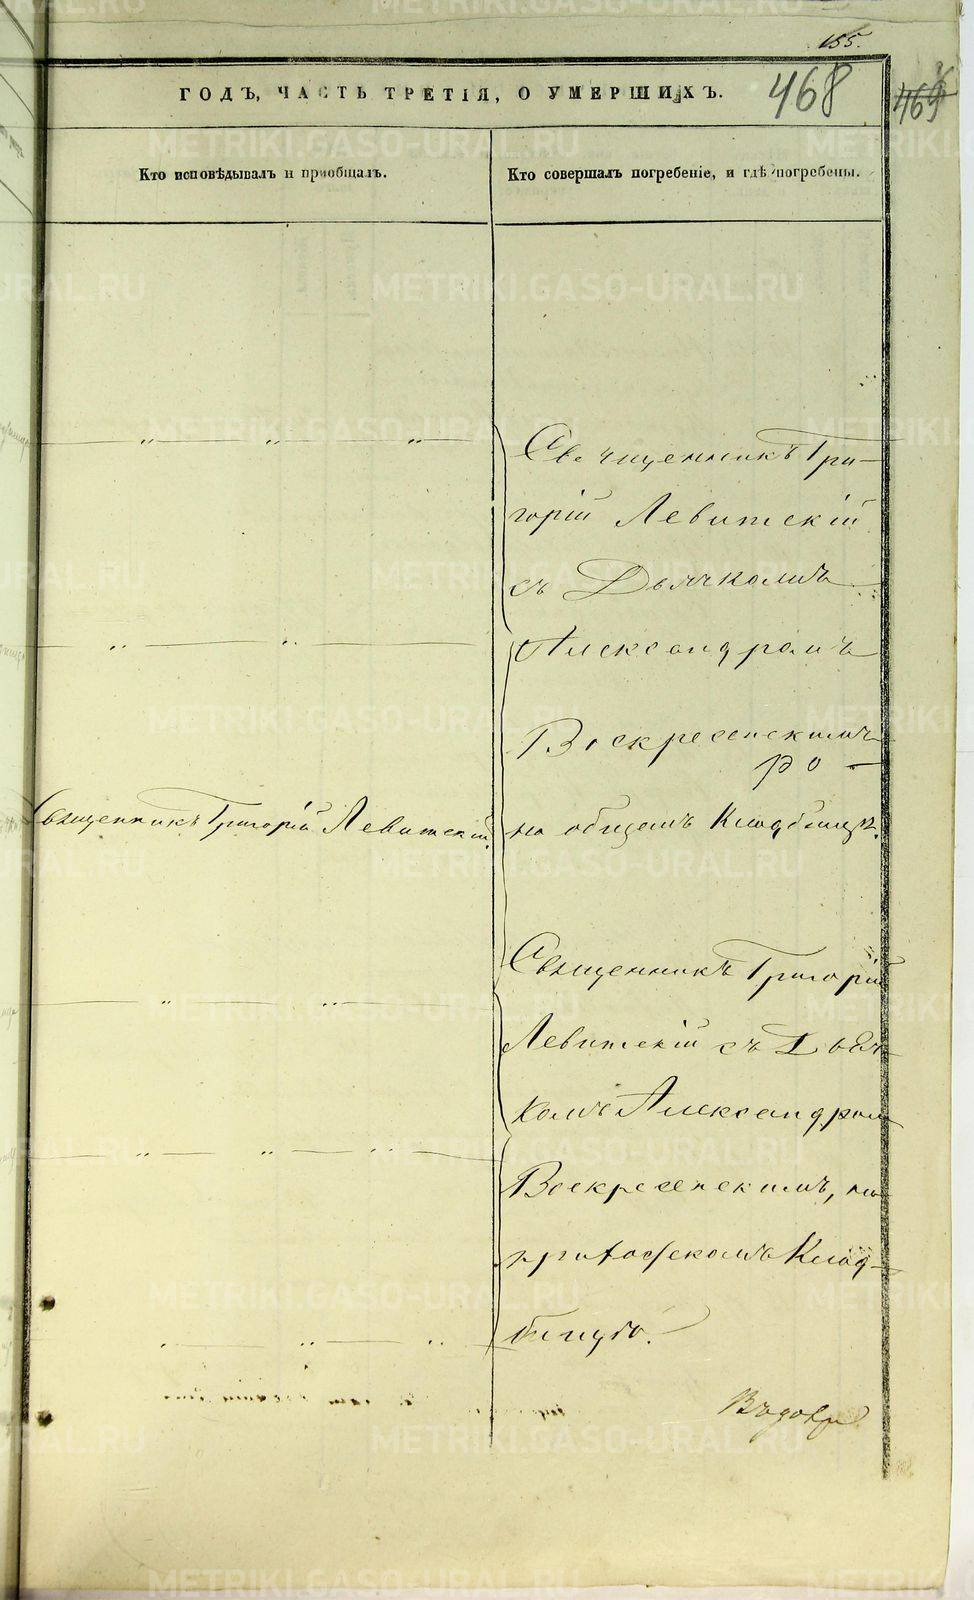 155.
ГОДЪ, ЧАСТЬ ТРЕТІЯ, О УМЕРШИХЪ.
468
469
Кто исповѣдывалъ и пріобщалъ.
Кто совершалъ погребеніе, и гдѣ погребены.
Священникъ Гри-
горій Левитскій
съ Дьячкомъ
Александромъ
Воскресенскимъ
на общемъ Кладбищѣ.
Священникъ Григорій Левитскій.
Священникъ Григорій
Левитскій съ Дьяч-
комъ Александром
Воскресенскимъ, на
приходскомъ Клад-
бищѣ.
METRIKI.GASO-URAL.RU